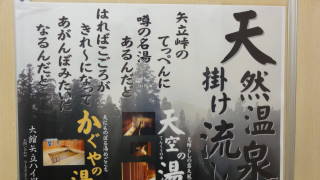 天然温泉
掛け流し
矢立峠の
てっぺんに
噂の名湯
あるんだど
はればこごろが
きれ〜になって
あがんぼみたいに
なるんだど
天空の湯
かぐやの湯
大館矢立ハイツ